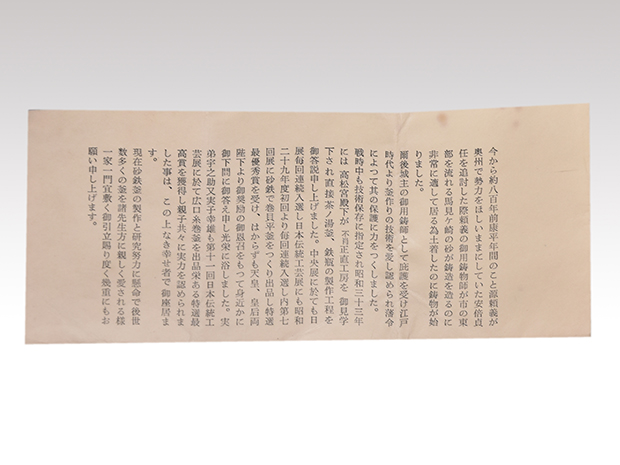 今から約八百年前康平年間のこと源頼義が
奥州で勢力をほしいままにしていた安倍貞
任を追討した際頼義の御用鋳物師が市の東
部を流れる馬見ヶ崎の砂が鋳造を造るのに
非常に適して居る為土着したのに鋳物が始
りました。
爾後城主の御用鋳師として庇護を受け江戸
時代より釜作りの技術を愛し認められ藩令
によつて其の保護に力をつくしました。
戦時中も技術保存に指定され昭和三十三年
には 高松宮殿下が 不肖正直工房を 御見学
下され直接茶ノ湯釜、鉄瓶の製作工程を
御答説申し上げました。中央展に於ても日
展毎回連続入選し日本伝統工芸展にも昭和
二十九年度初回より毎回連続入選し内第七
回展に砂鉄で巻貝平釜をつくり出品し特選
最優秀賞を受け、はからずも天皇、皇后両
陛下より御奨励の御恩召をもつて身近かに
御下問に御答え申し光栄に浴しました。実
弟宇之助又実子幸雄も第十一回日本伝統工
芸展に於て広口糸巻釜を出品栄ある特選最
高賞を獲得し親子共々に実力を認められま
した事は、この上なき幸せ者で御座居ま
す。
現在砂鉄釜の製作と研究努力に懸命で後世
数多くの釜を諸先生方に親しく愛される様
一家一門宜敷く御引立賜り度く幾重にもお
願い申し上げます。